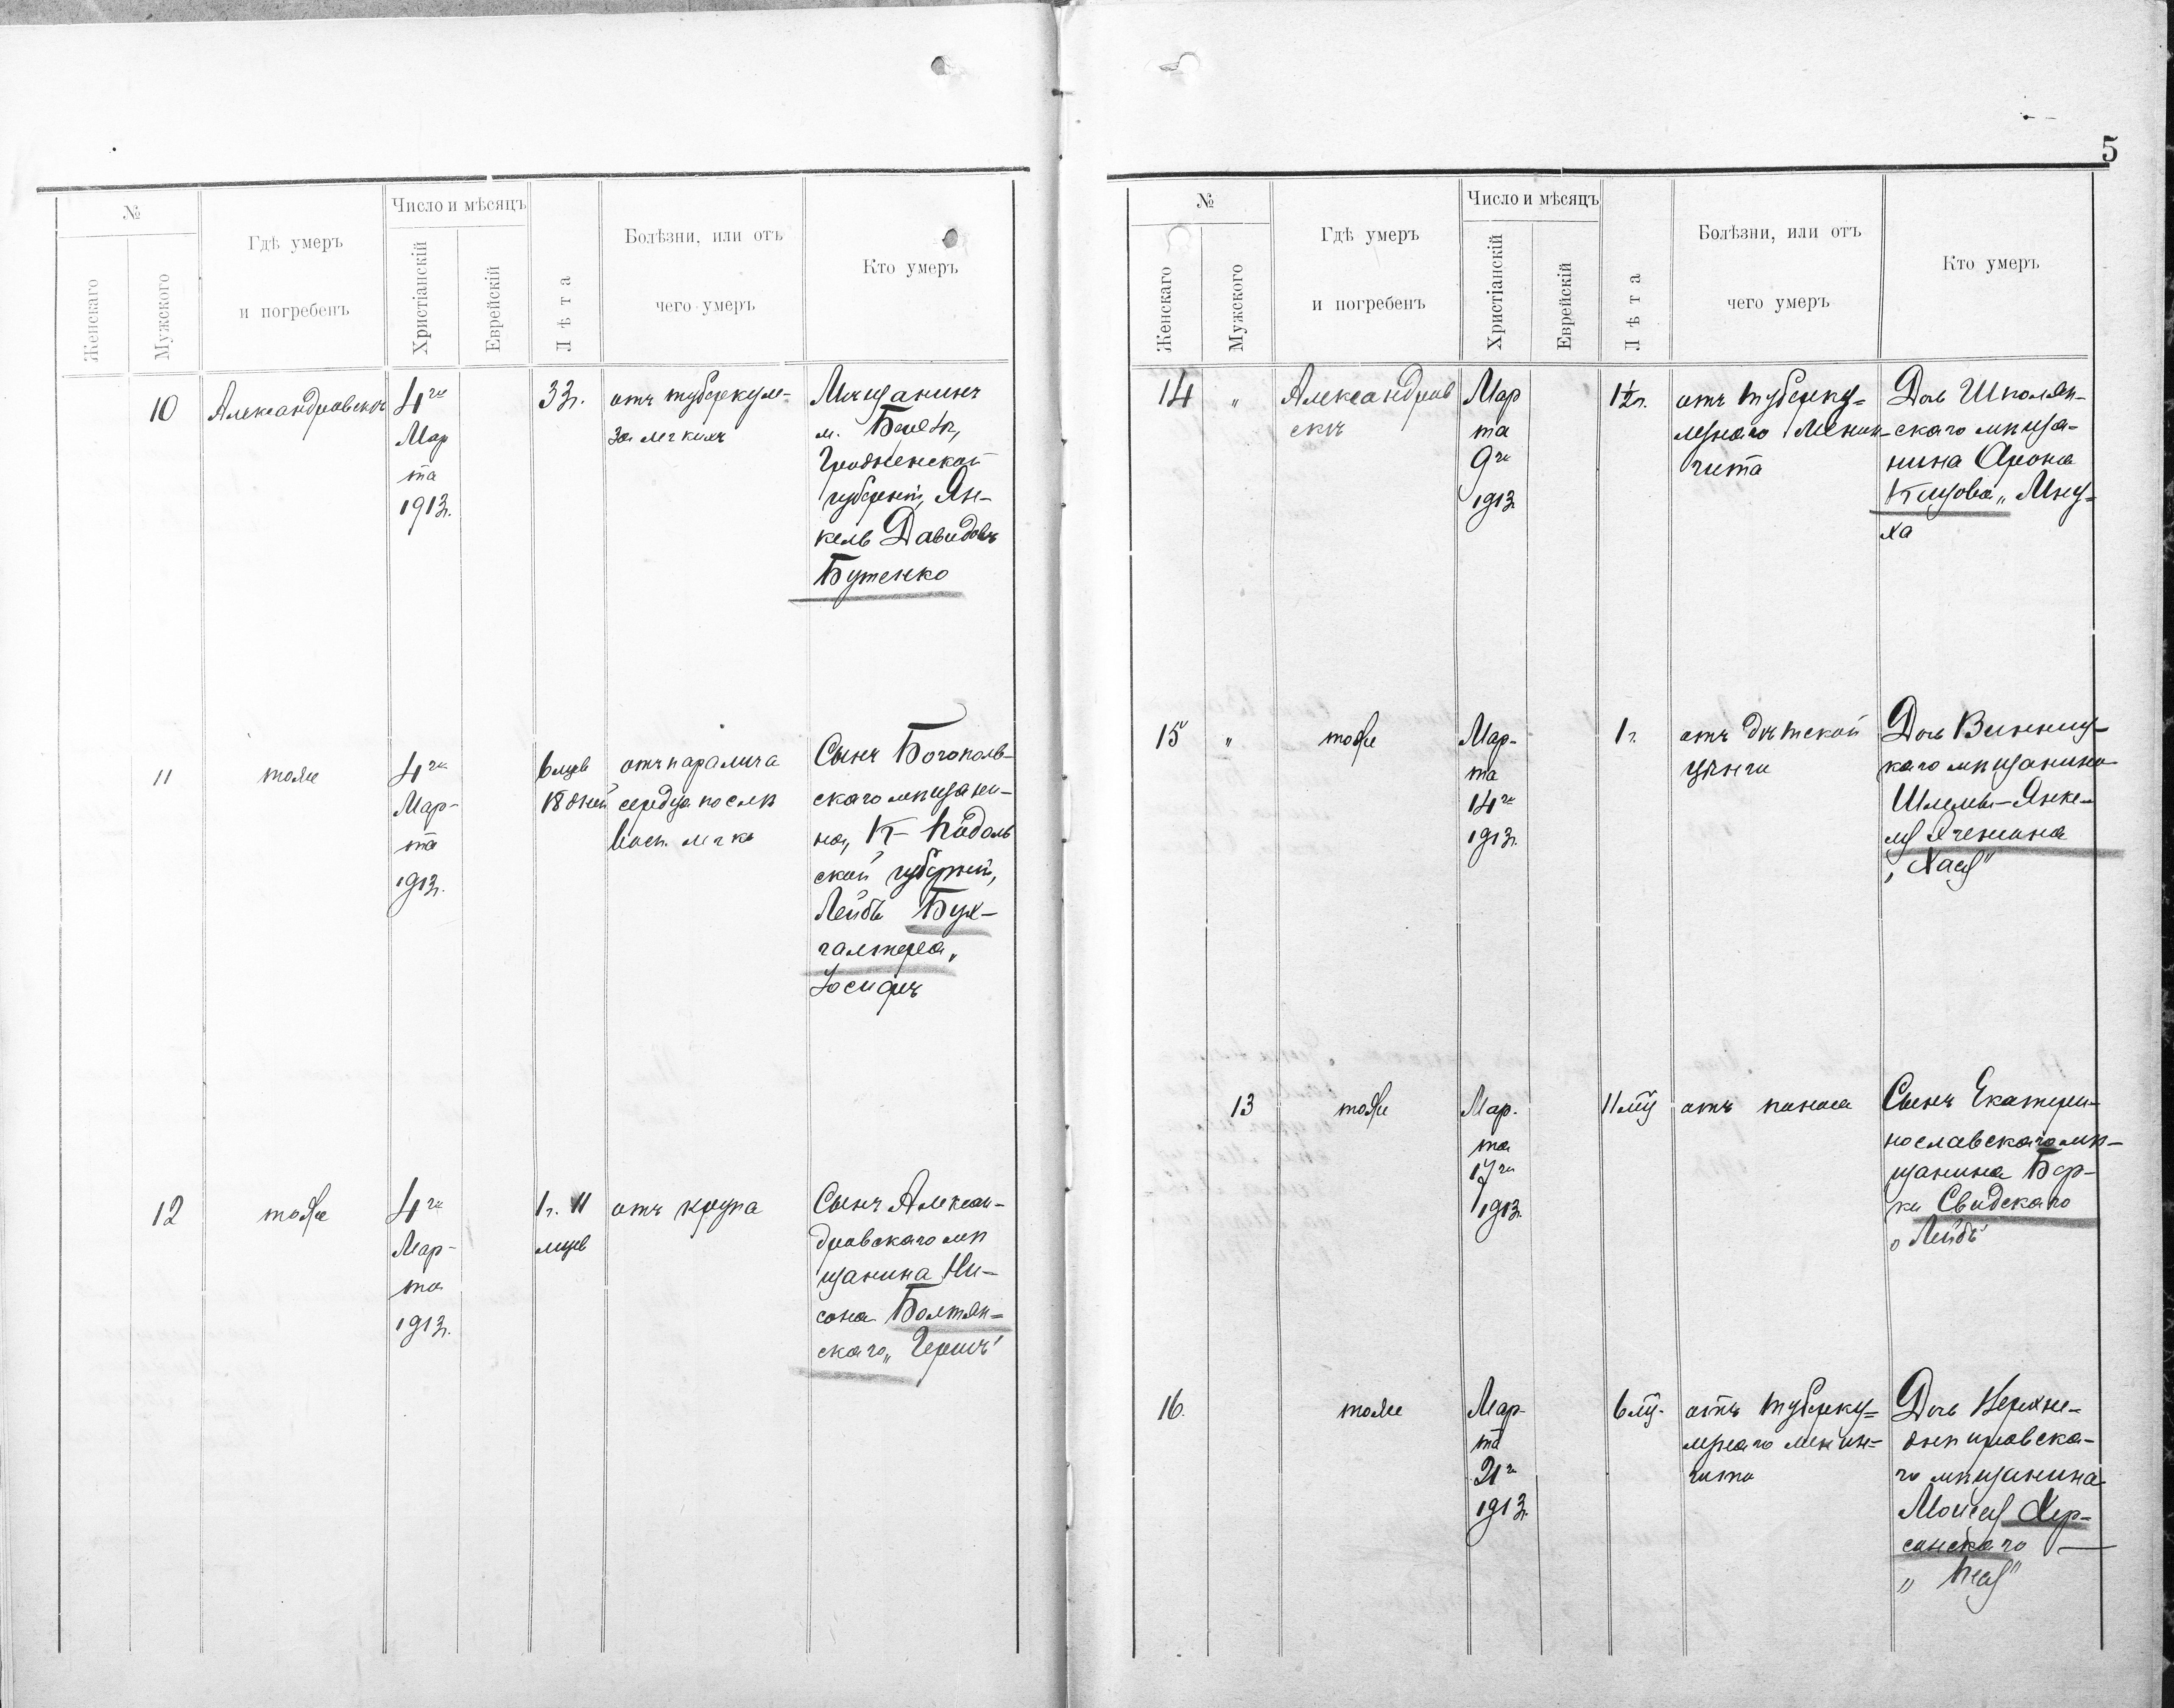 №
Женскаго
Мужского
Гдѣ умеръ
и погребенъ
Число и мѣсяцъ
Христіанскій
Еврейскій
Лѣта
Болѣзни, или отъ
чего умеръ
Кто умеръ
10
Александровскъ
4го
Мар
та
1913г.
33г.
отъ туберкуле-
за легкихъ
Мѣщанинъ
м.
Гродненской
губерніи, Ян-
кель Давидовъ
Бутенко
11
тоже
4го
Мар-
та
1913г.
6 мцев
18 дней
отъ паралича
сердца послѣ
восп. легк
Сынъ Богополь-
скаго мѣщани-
на, К- Подоль
ской губерніи,
Лейбы Бух-
галтера,
Іосифъ
12
тоже
4го
Мар-
та
1913г.
1г. 11
мцев
отъ крупа
Сынъ Алексан-
дровскаго мѣ
щанина Ни-
сона Болтян-
скаго „Гершъ"
5
№
Женскаго
Мужского
Гдѣ умеръ
и погребенъ
Число и мѣсяцъ
Христіанскій
Еврейскій
Лѣта
Болѣзни, или отъ
чего умеръ
Кто умеръ
14
"
Александров
скъ
Мар
та
9го
1913
1½г.
отъ туберку-
лезнаго менин-
гита
Дочь Шполян-
скаго мѣща-
нина Арона
„Мну-
ха
15
"
тоже
Мар-
та
14го
1913г.
1г.
отъ дѣтской
цынги
Дочь Винниц-
каго мѣщанина
Шлемы-Янке-
ля
„Хая"
13
тоже
Мар.
та
17го
1913г.
11 мц
отъ поноса
Сынъ Екатери-
нославскаго мѣ-
щанина Бер-
ки Свидскаго
„Лейбъ"
16.
тоже
Мар-
та
21го
1913г.
6 мц.
отъ туберку-
лезнаго менин-
гита
Дочь Верхне-
днѣпровска-
го мѣщанина
Моисея Хер-
сонскаго —
„Пея"